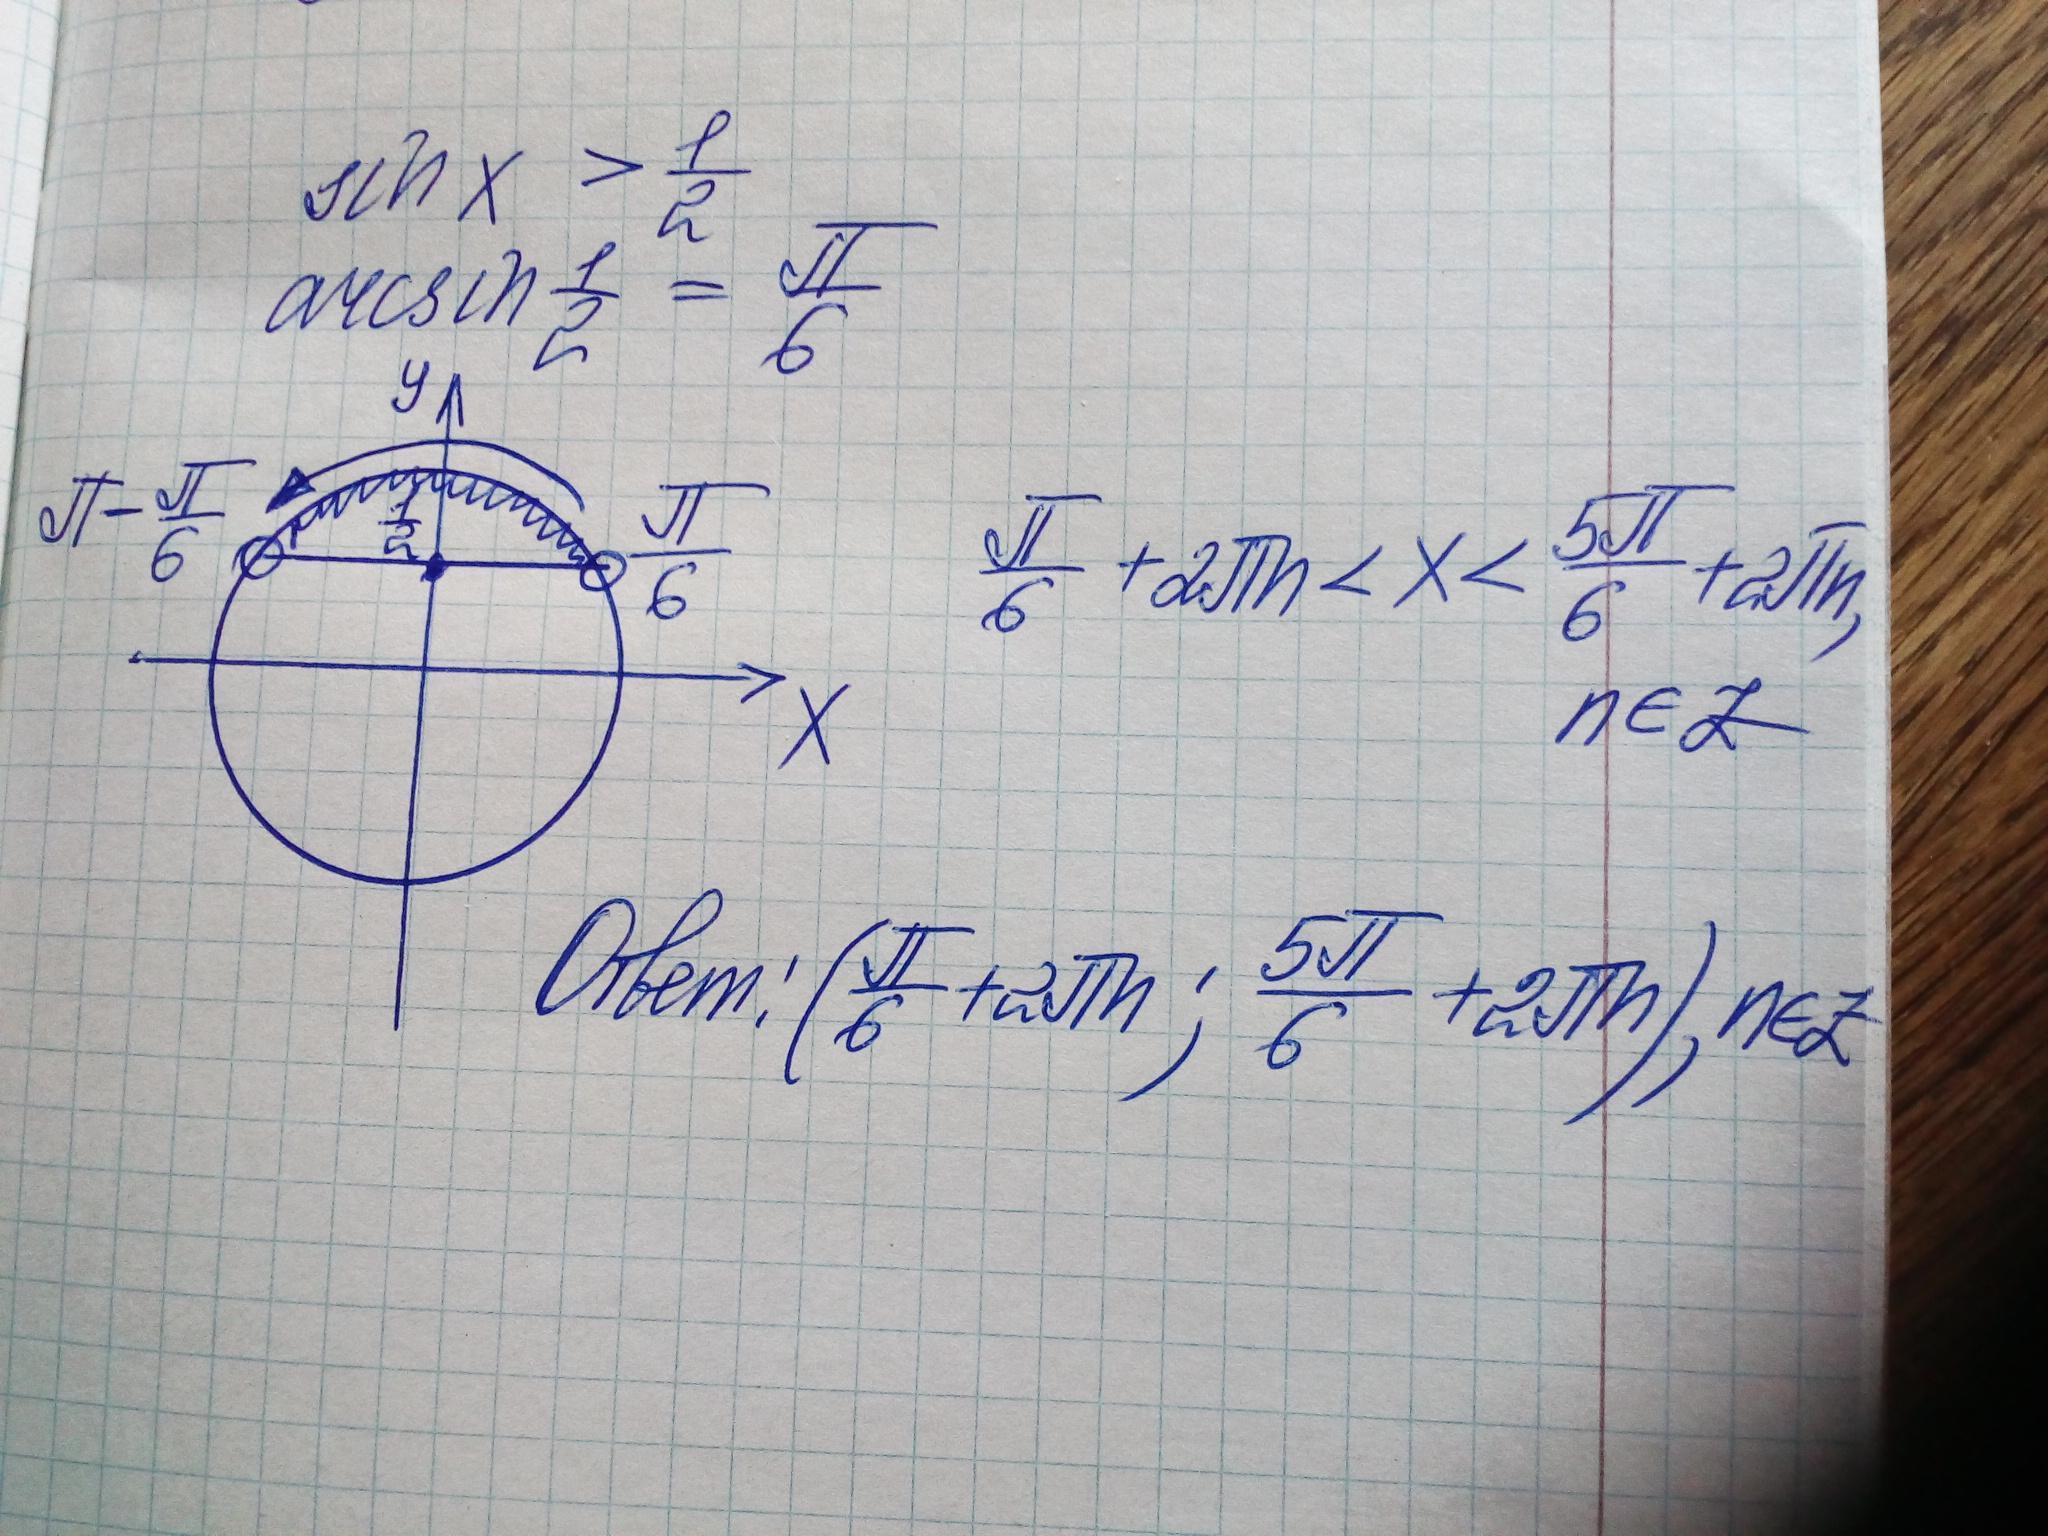 sin x > 1/2
arcsin 1/2 = π/6
y
π - π/6
1/2
π/6
x
π/6 + 2πn < x < 5π/6 + 2πn,
n ∈ Z
Ответ: (π/6 + 2πn; 5π/6 + 2πn), n ∈ Z